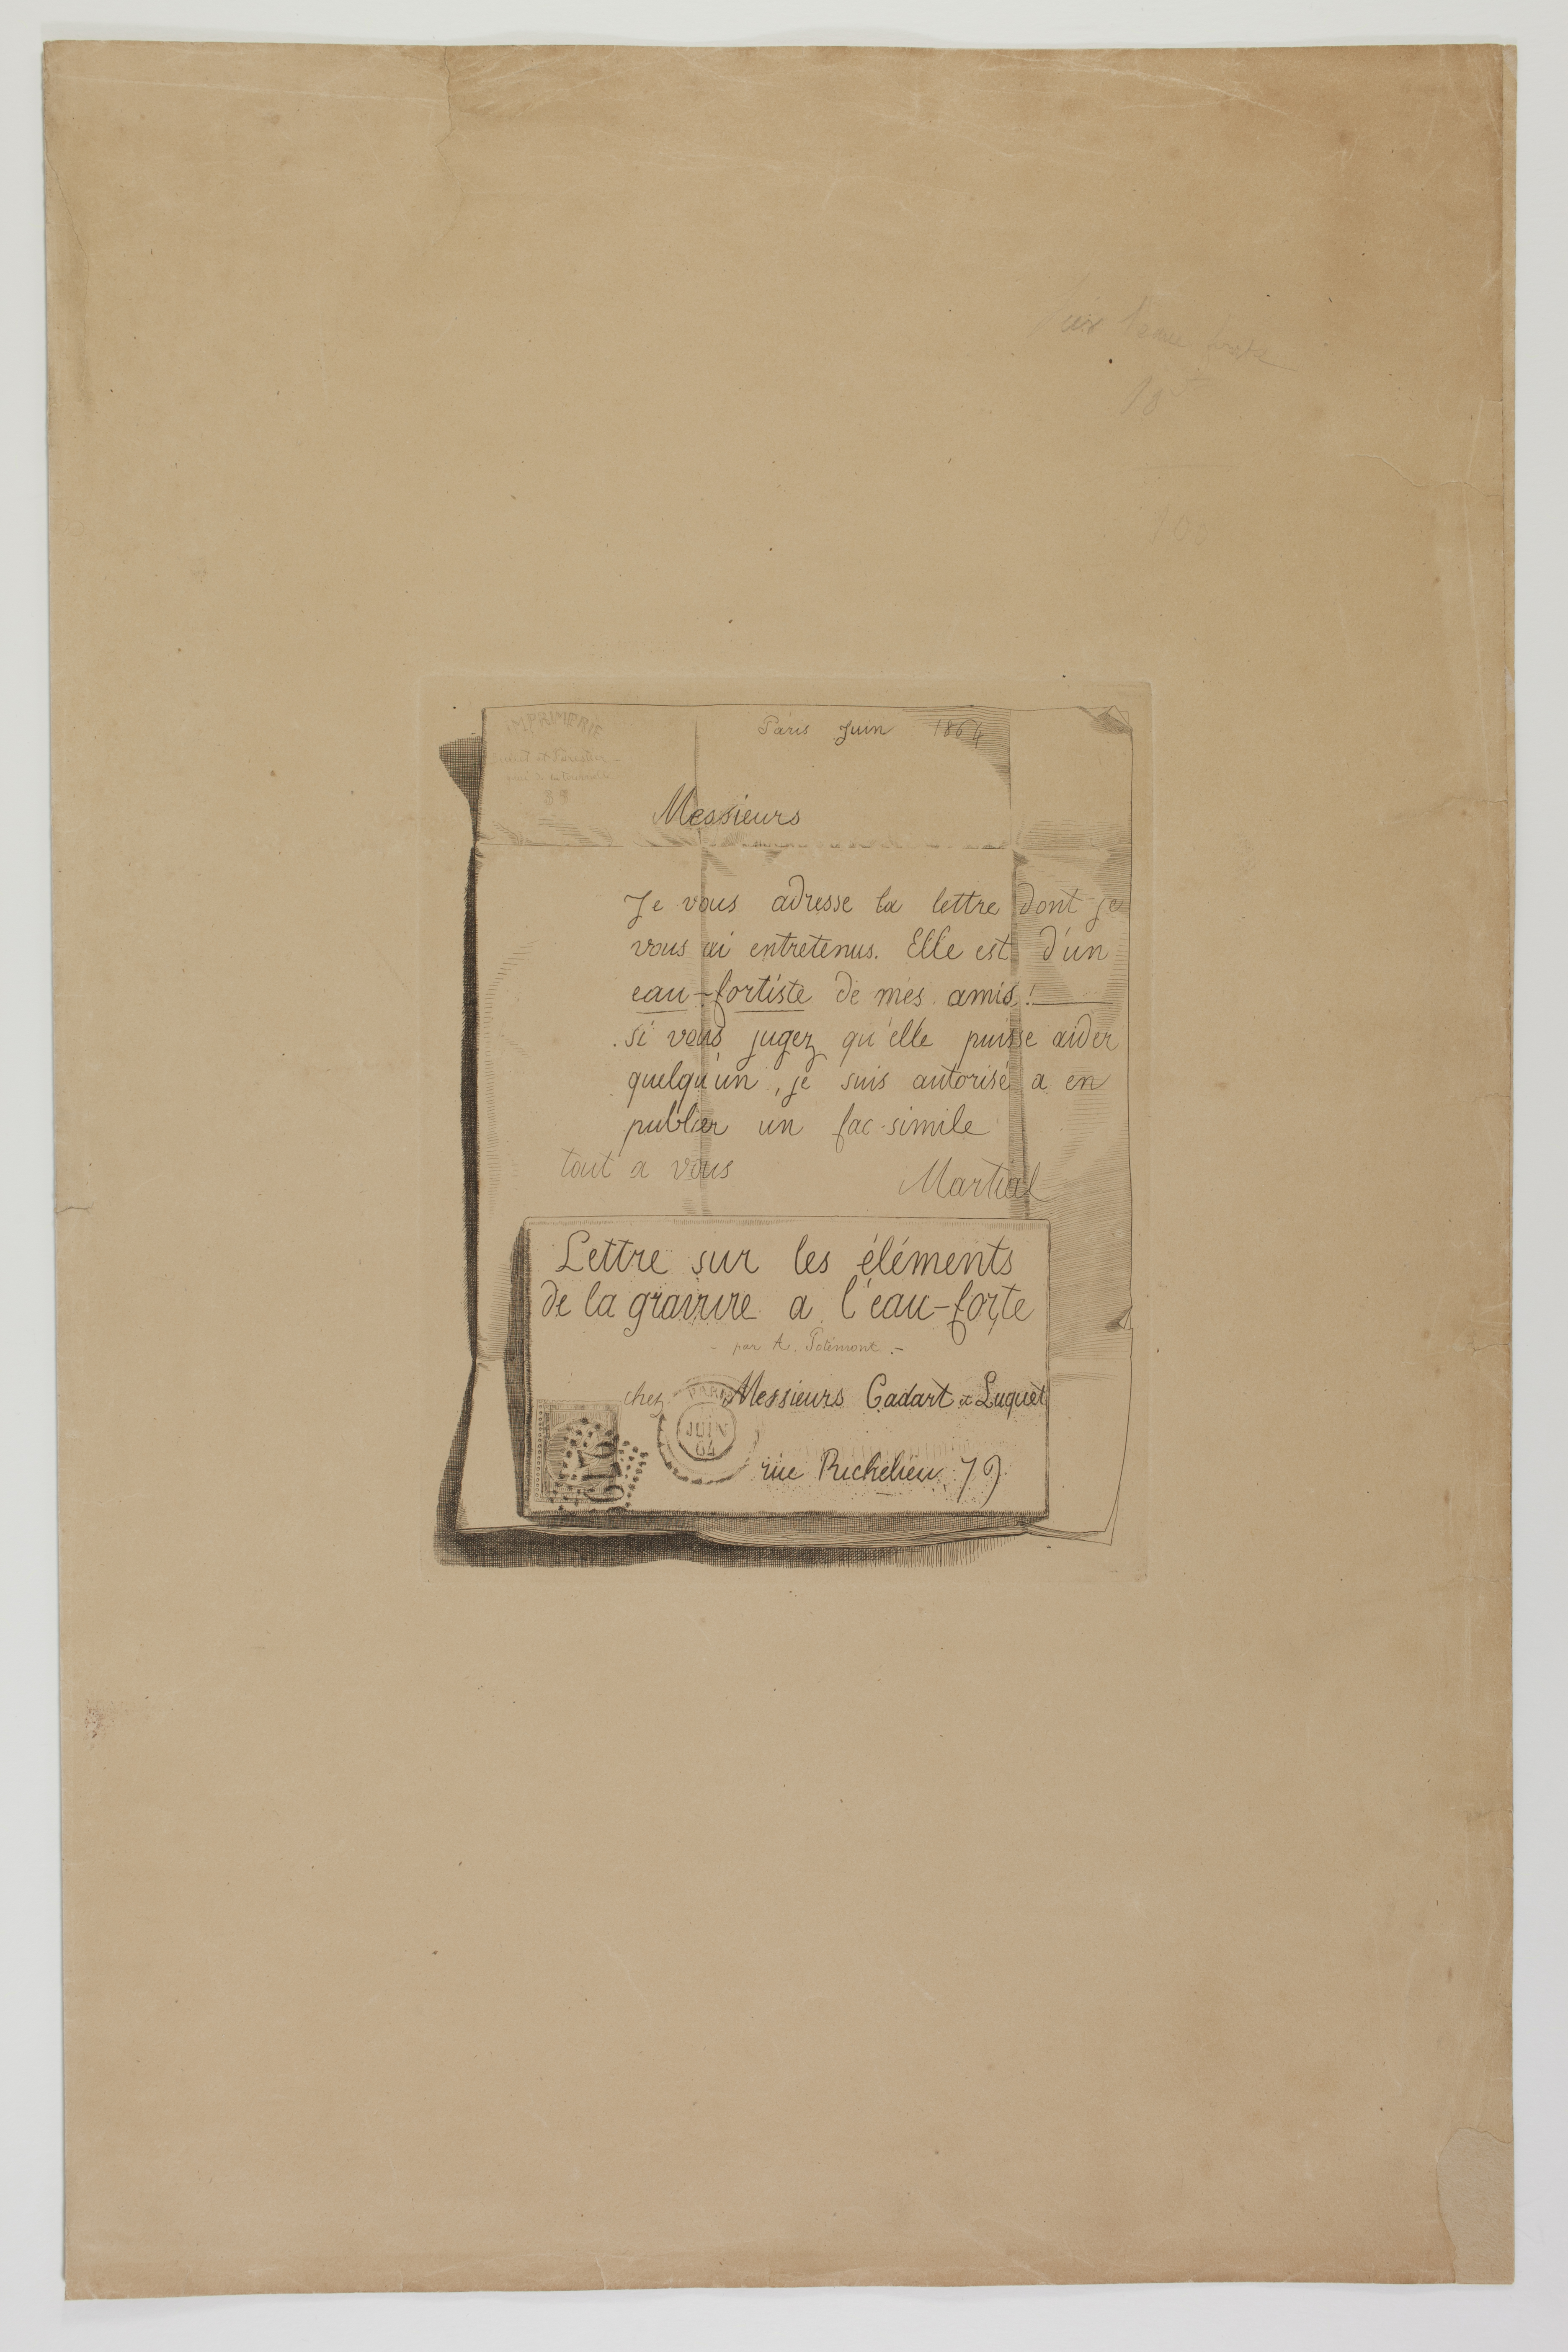 IMPRIMERIE
Paris Juin 1864
Messieurs
Je vous adresse la lettre dont je
vous ai entretenus. Elle est d'un
eau-fortiste de mes amis!
si vous jugez qu'elle puisse aider
quelqu'un, je suis autorisé a en
publier un fac-simile
tout a vous
Martial
Lettre sur les éléments
de la gravure a l'eau-forte
- par A. Potémont -
chez Messieurs Cadart et Luquet
PARIS
JUIN
64
rue Richelieu, 79